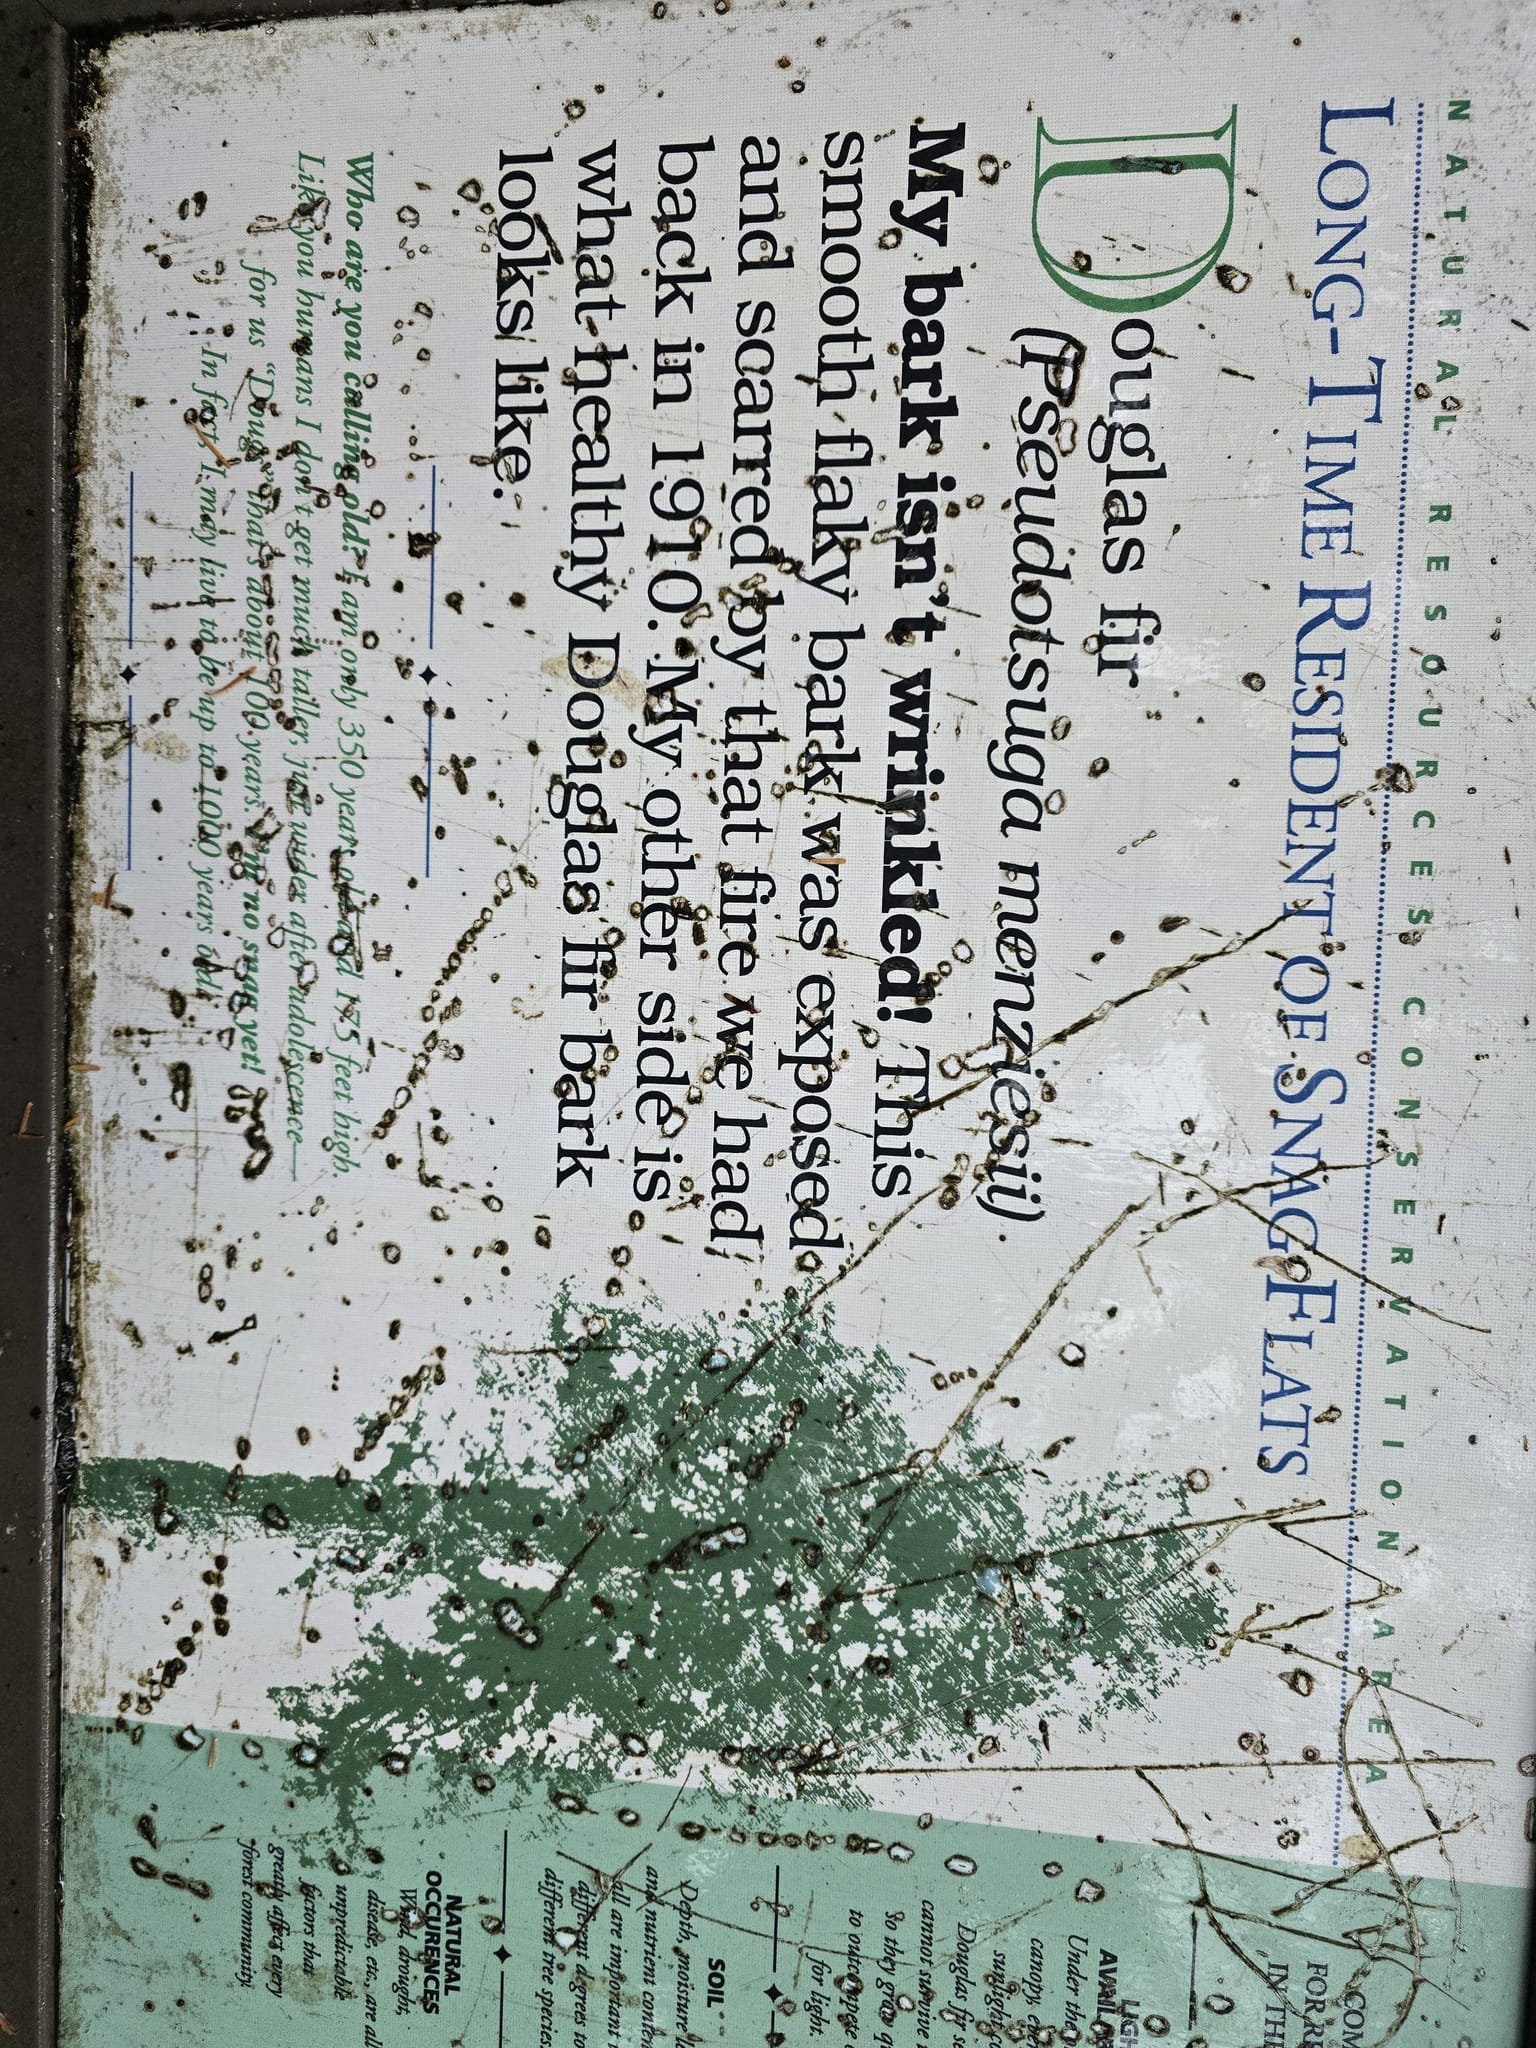 NATURAL RESOURCES CONSERVATION AREA
LONG-TIME RESIDENT OF SNAG FLATS
Douglas fir
(Pseudotsuga menziesii)
My bark isn't wrinkled! This
smooth flaky bark was exposed
and scarred by that fire we had
back in 1910. My other side is
what healthy Douglas fir bark
looks like.
Who are you calling old? I am only 350 years old and 175 feet high.
Like you humans I don't get much taller, just wider after adolescence—
for us "Dougs" that's about 100 years. I'm no snag yet!
In fact, I may live to be up to 1000 years old!
COM
FOR RE
IN THE
LIGH
AVAI
Under the
canopy,
sunlight
Douglas fir se
cannot survive
So they grow
to outcompete
for light.
SOIL
Depth, moisture
and nutrient conten
all are important
different degrees to
different tree species.
NATURAL
OCCURENCES
Wind, drought,
disease, etc., are all
unpredictable
factors that
greatly affect every
forest community.